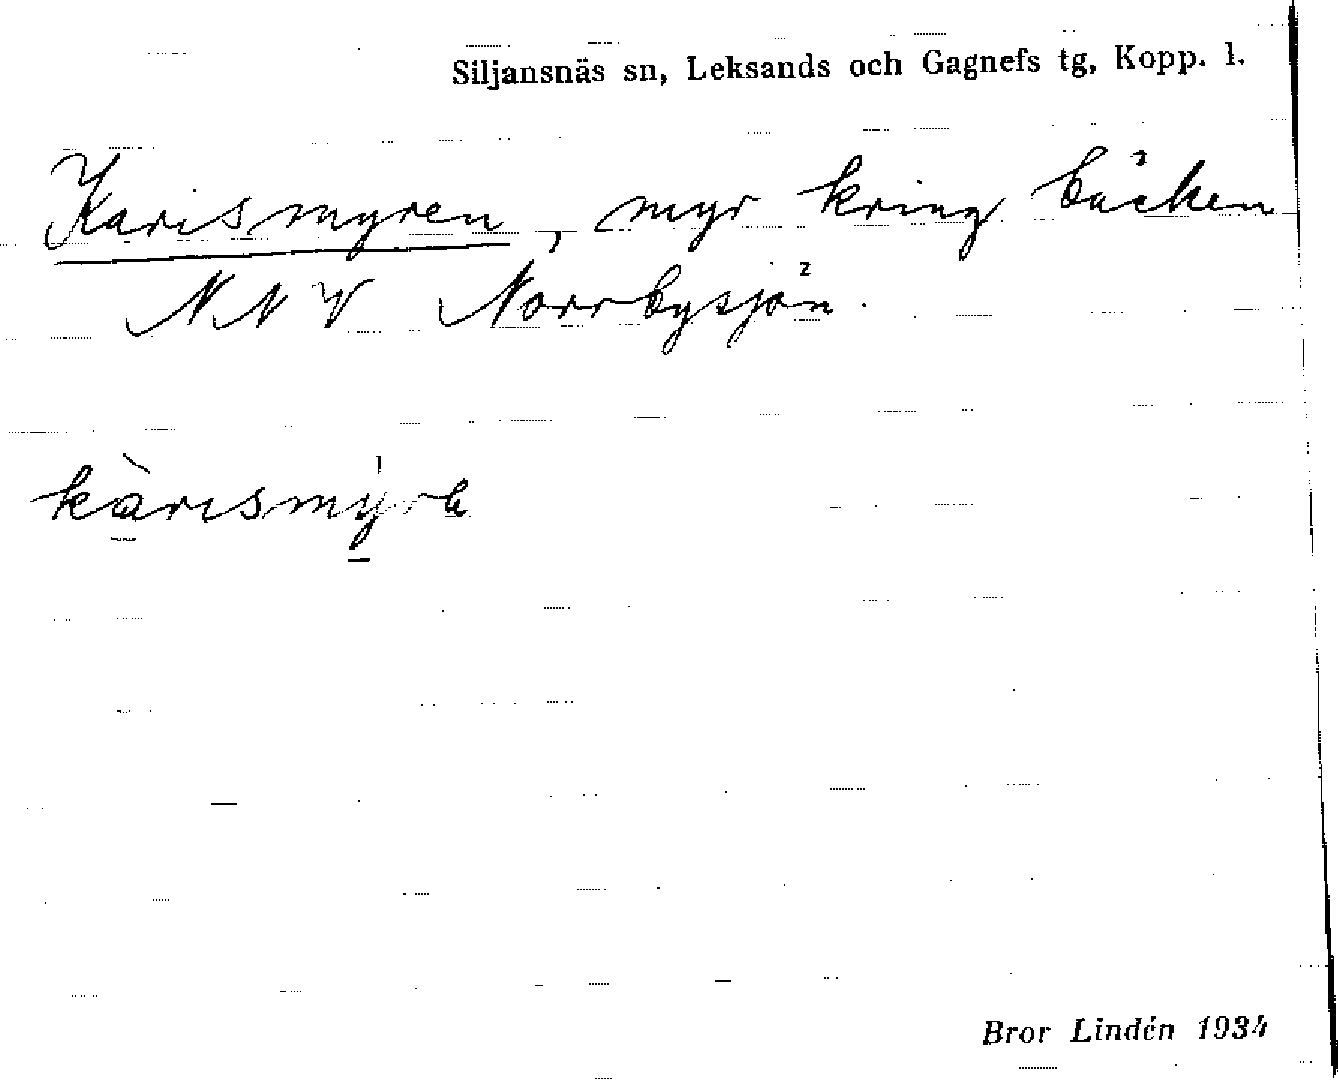 Siljansnäs sn, Leksands och Gagnefs tg, Kopp. l.
Karismyren, myr kring bäcken
NNV Norrbysjön.
kàrısmy̍rɑ
Bror Lindén 1934